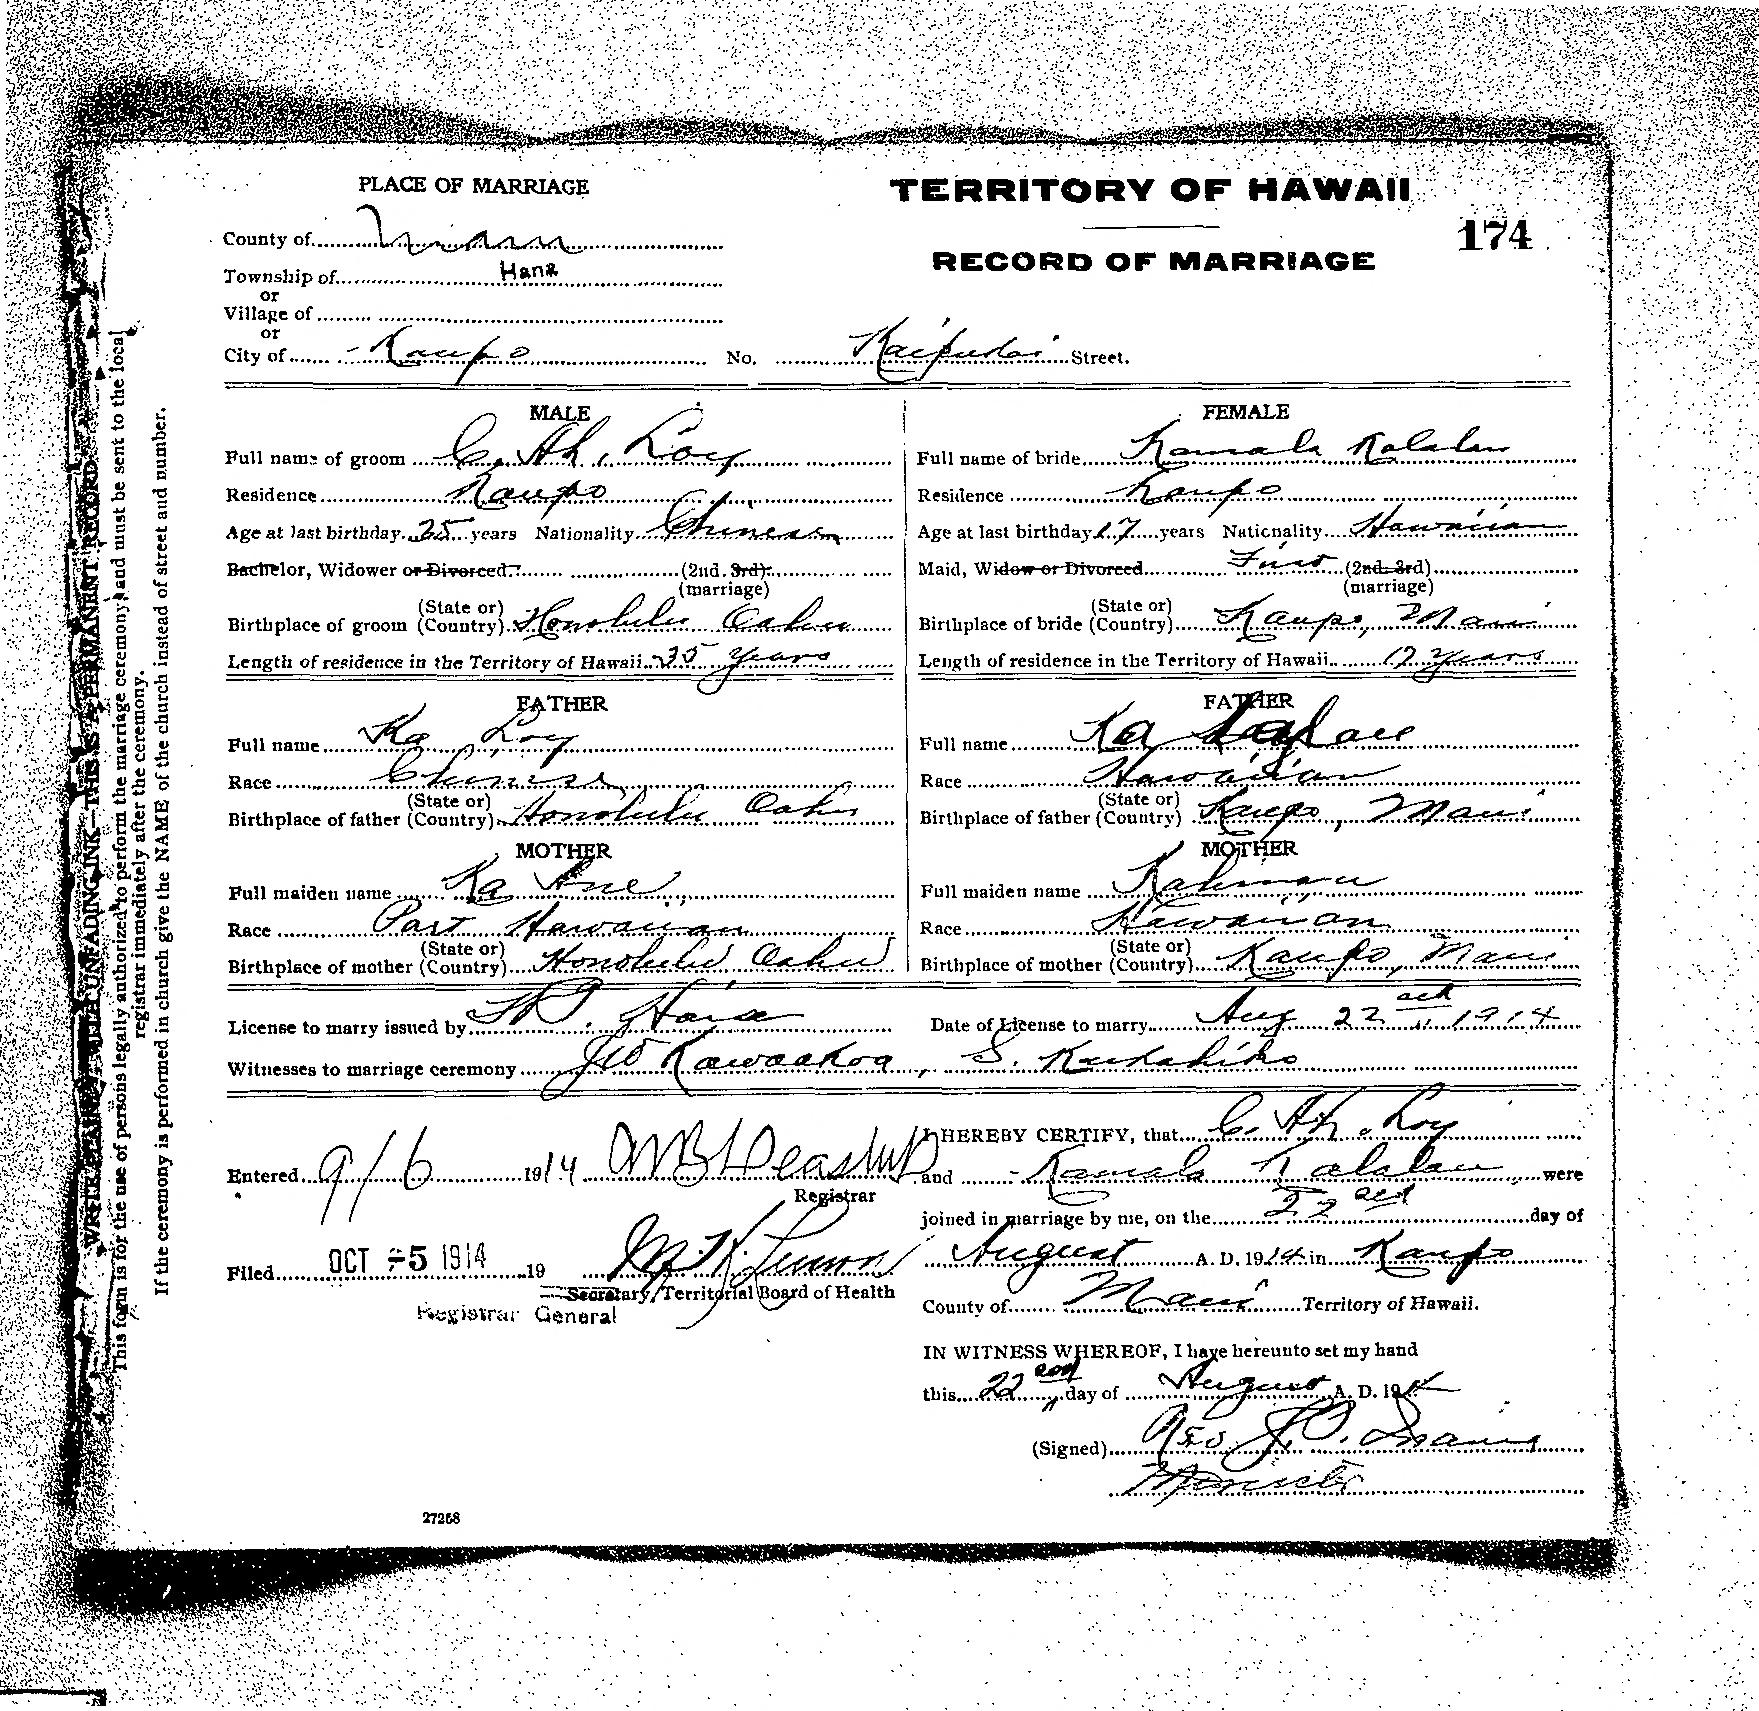 PLACE OF MARRIAGE
TERRITORY OF HAWAII
174
RECORD OF MARRIAGE
County of Maui
Township of Hana
or
Village of
or
City of Kaupo No. Street.
MALE
Full name of groom C. Ah. Loy
Residence Kaupo
Age at last birthday 35 years Nationality Chinese
Bachelor, Widower or Divorced (2nd. 3rd)
(marriage)
Birthplace of groom (State or Country) Honolulu Oahu
Length of residence in the Territory of Hawaii 35 years
FEMALE
Full name of bride Kamala Kalalau
Residence Kaupo
Age at last birthday 17 years Nationality Hawaiian
Maid, Widow or Divorced First (2nd. 3rd)
(marriage)
Birthplace of bride (State or Country) Kaupo, Maui
Length of residence in the Territory of Hawaii 17 years
FATHER
Full name Ka Loy
Race Chinese
Birthplace of father (State or Country) Honolulu Oahu
MOTHER
Full maiden name Ka Ane
Race Part Hawaiian
Birthplace of mother (State or Country) Honolulu Oahu
FATHER
Full name Ka
Race Hawaiian
Birthplace of father (State or Country) Kaupo, Maui
MOTHER
Full maiden name
Race Hawaiian
Birthplace of mother (State or Country) Kaupo, Maui
License to marry issued by Date of License to marry Aug 22 1914
Witnesses to marriage ceremony J W Kawaakoa, S.
Entered 9/6 1914
Registrar
Filed OCT -5 1914 19
Secretary, Territorial Board of Health
Registrar General
I HEREBY CERTIFY, that C. Ah. Loy
and Kamala Kalalau were
joined in marriage by me, on the 22 day of
August A. D. 1914 in Kaupo
County of Maui Territory of Hawaii.
IN WITNESS WHEREOF, I have hereunto set my hand
this 22 day of August A. D. 19
(Signed)
Minister
27268
WRITE PLAINLY WITH UNFADING INK—THIS IS A PERMANENT RECORD
This form is for the use of persons legally authorized to perform the marriage ceremony and must be sent to the local
registrar immediately after the ceremony.
If the ceremony is performed in church give the NAME of the church instead of street and number.